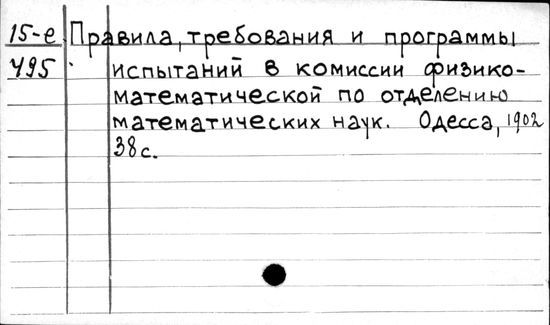 15-е Правила, требования и программы
495 испытаний в комиссии физико-
математической по отделению
математических наук. Одесса, 1902
38 с.